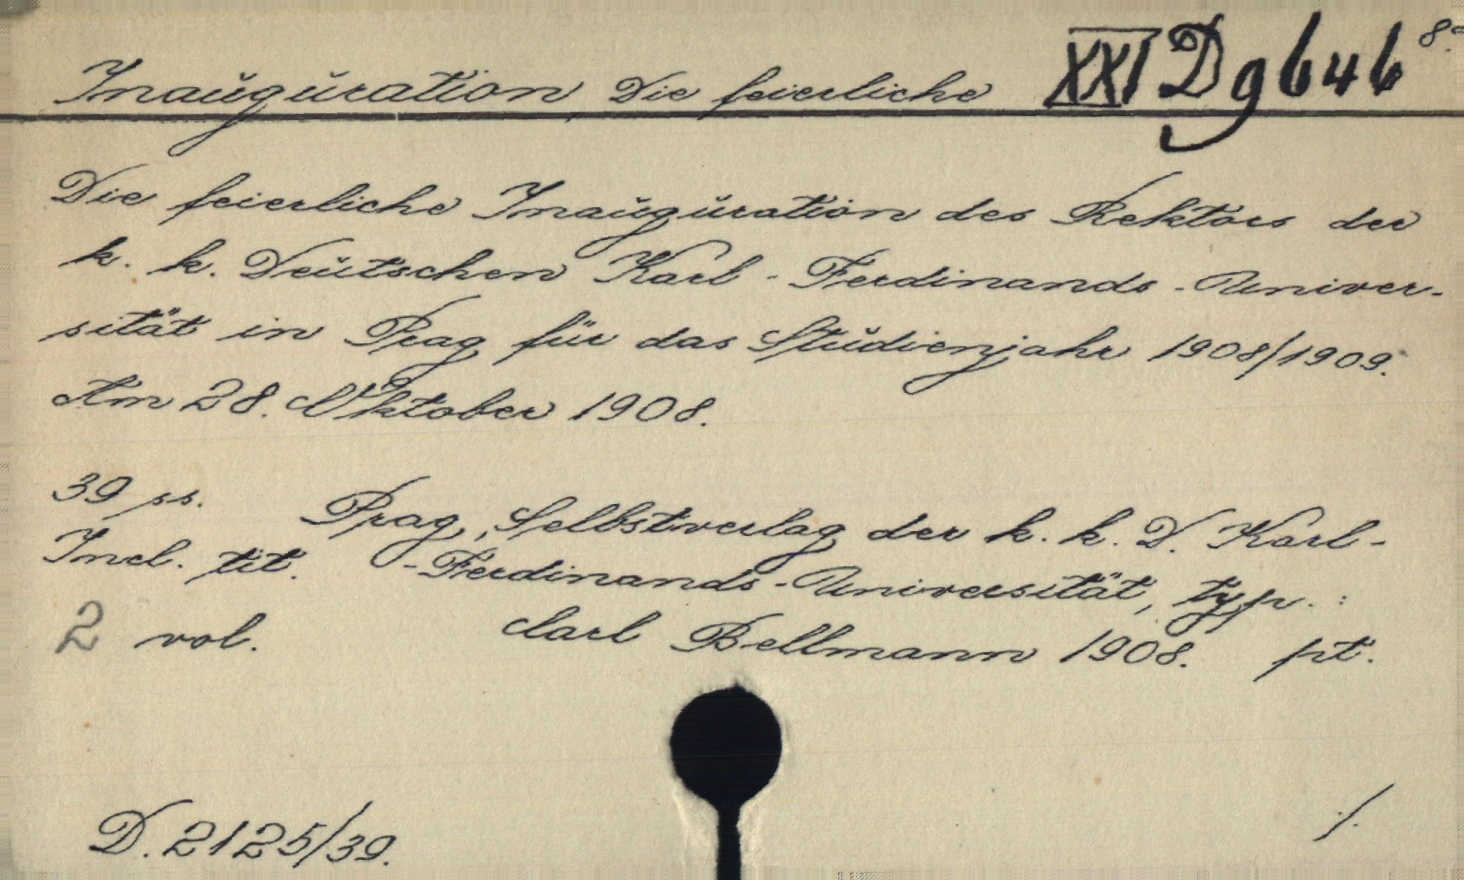 Inauguration Die feierliche XXI D g 646 8°
Die feierliche Inauguration des Rektors der
k. k. Deutschen Karl-Ferdinands-Univer-
sität in Prag für das Studienjahr 1908/1909.
Am 28. Oktober 1908.
39 ss. Prag, Selbstverlag der k. k. D. Karl-
Incl. tit. -Ferdinands-Universität, typ.:
2 vol. Carl Bellmann 1908. pt.
D. 2125/39. ./.